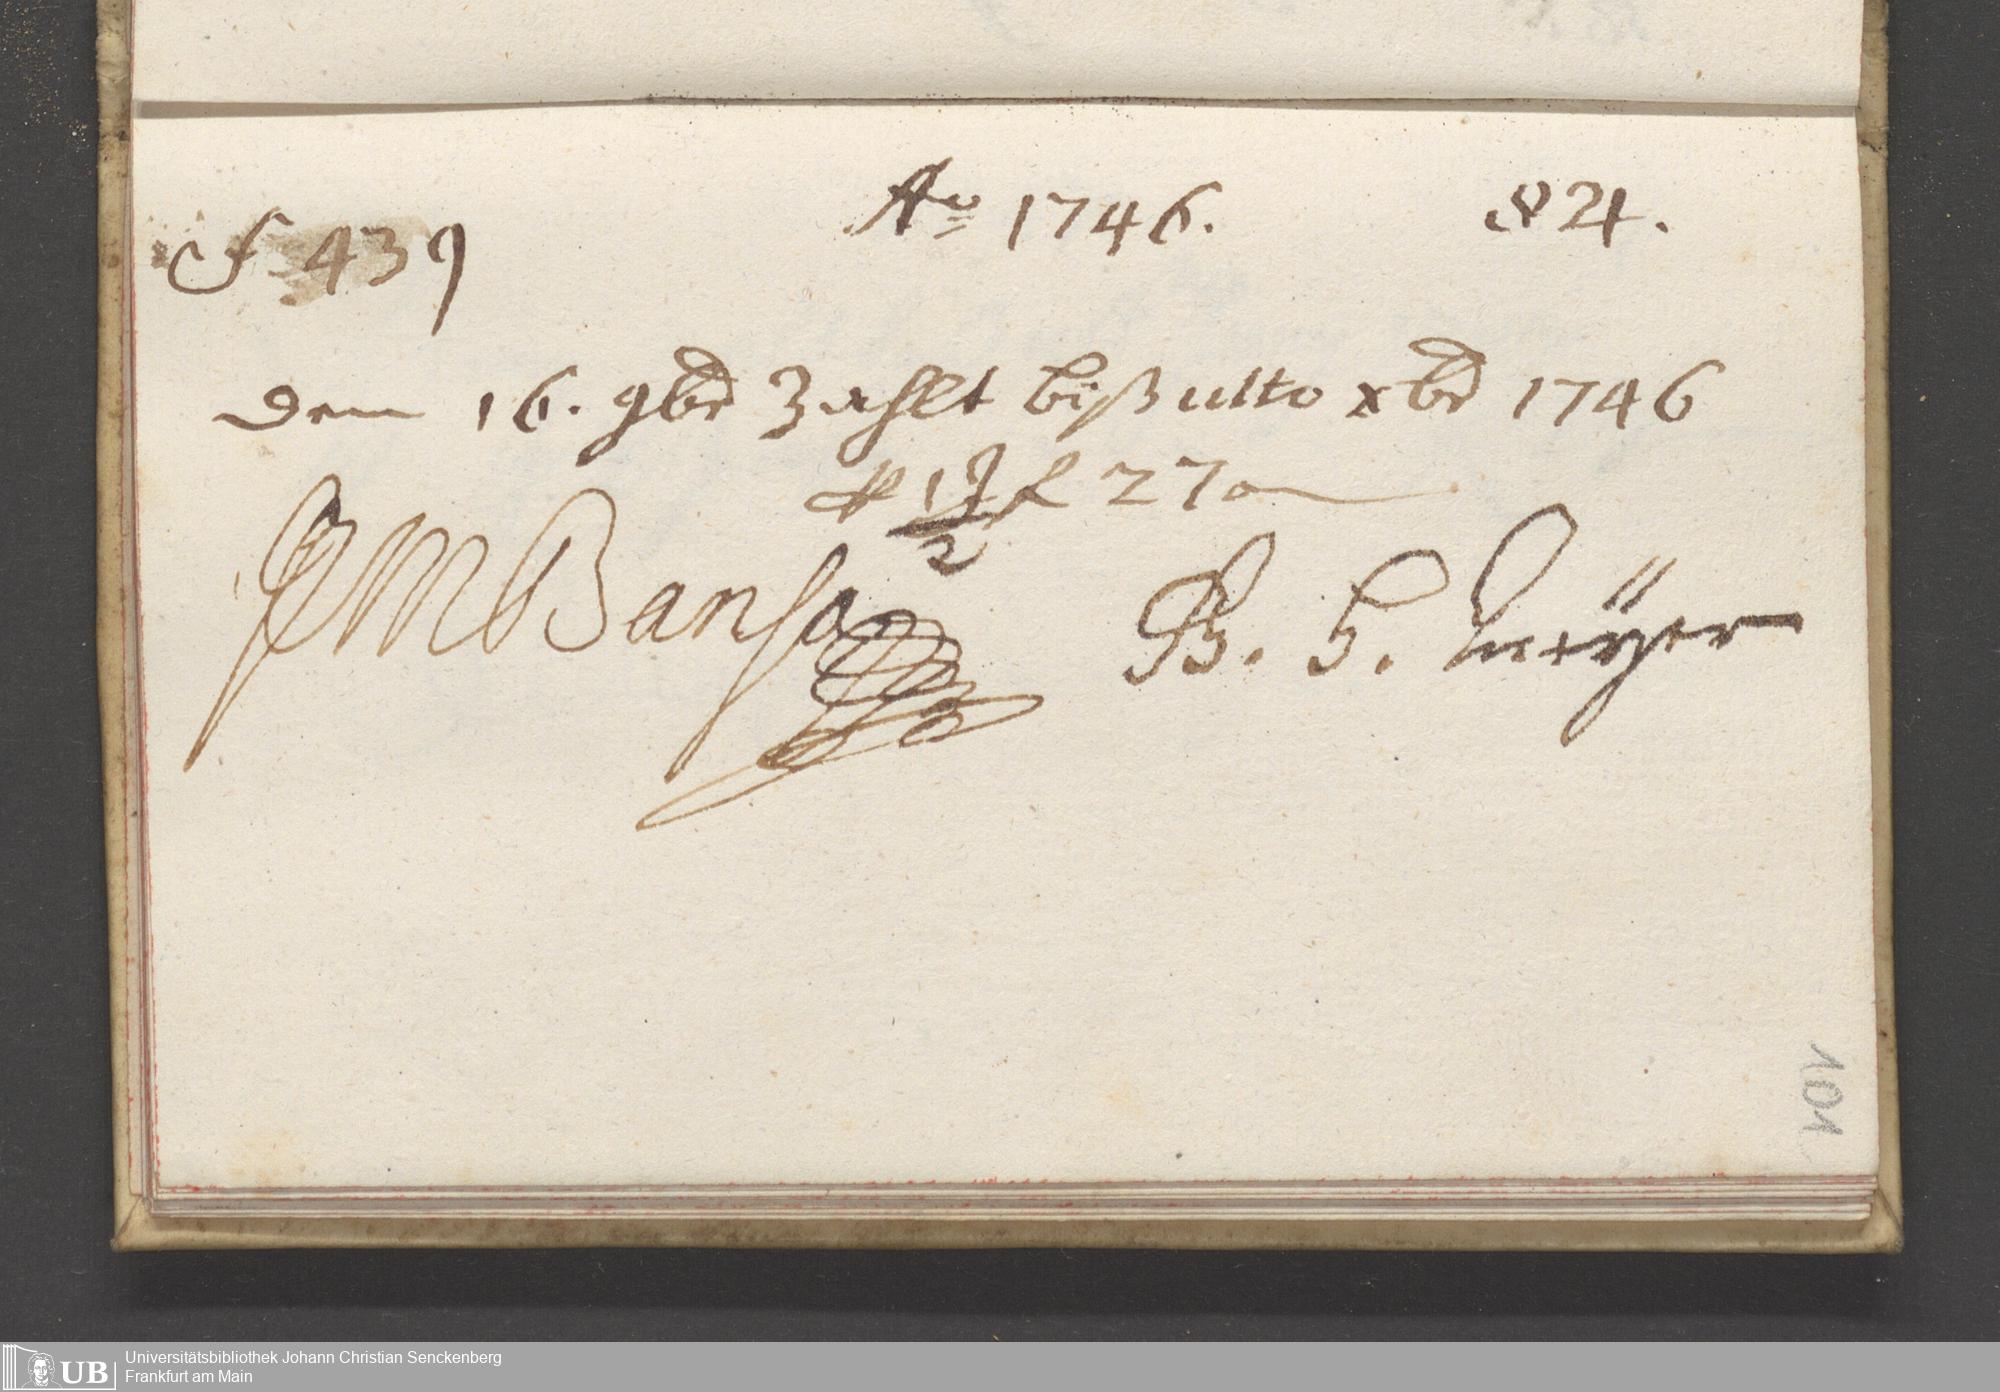 Ao 1746.
f. 439
Dem 16. 9br Zahlt biß ulto xbr 1746
f 27
JM Bansa
B. H. Meÿer
101
UB
Universitätsbibliothek Johann Christian Senckenberg
Frankfurt am Main